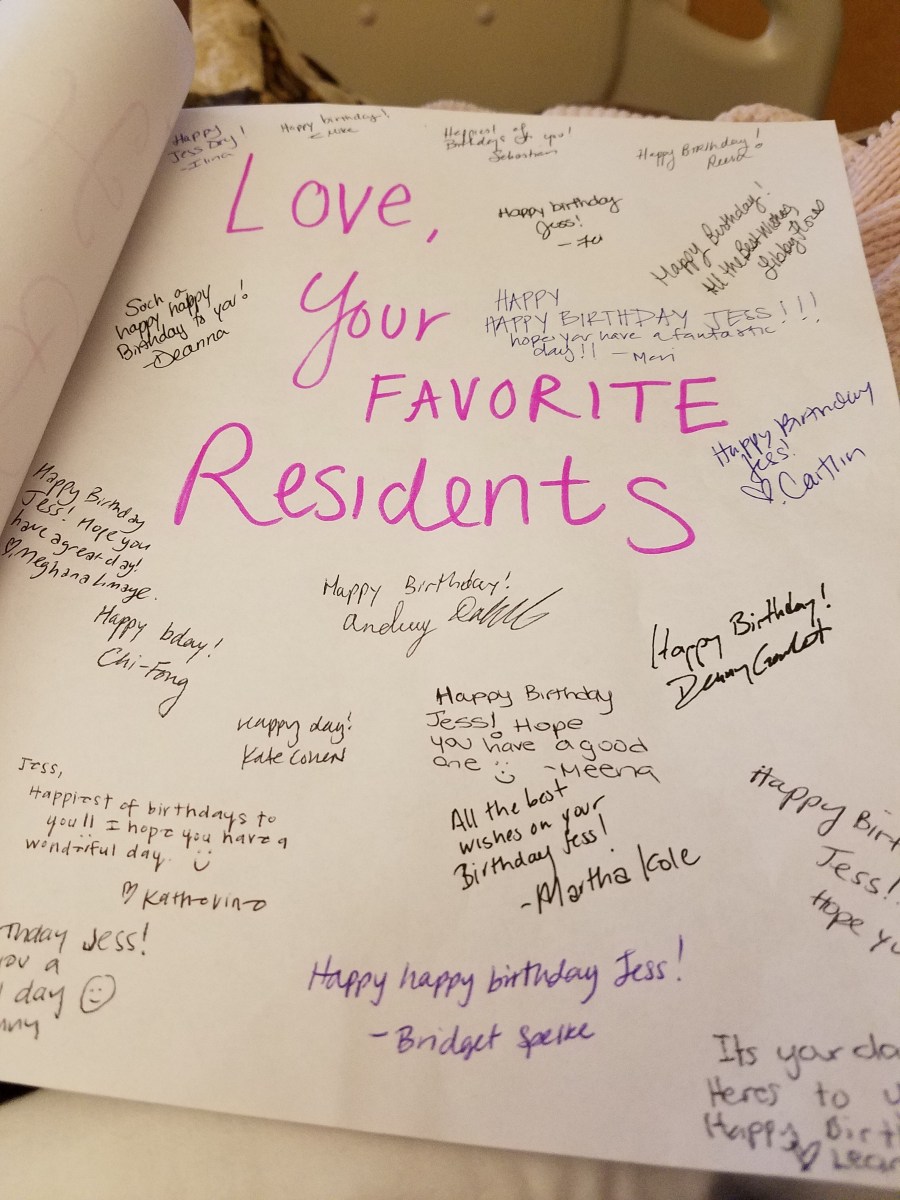 Happy
Jess Day!
-Irina
Happy birthday!
Mike
Happiest
Birthdays of
you!
Sebastian
Happy Birthday!
Love,
Happy birthday
Jess!
Happy Birthday!
All the Best Wishes
Libby Flores
Such a
happy happy
Birthday to you!
-Deanna
Your
HAPPY
HAPPY BIRTHDAY JESS!!!
hope you have a fantastic
day!! -Meri
FAVORITE
Happy Birthday
Jess!
♡ Caitlin
Residents
Happy Birthday
Jess! Hope you
have a great day!
♡ Meghana Limaye.
Happy Birthday!
Happy Birthday!
Denny
Happy bday!
Chi-Fong
Happy day!
Kate Cohen
Happy Birthday
Jess! Hope
you have a good
one -Meena
Jess,
Happiest of birthdays to
you!! I hope you have a
wonderful day.
♡ Katherine
All the best
wishes on your
Birthday Jess!
-Martha Kole
Happy Birt
Jess!
Hope yo
thday Jess!
you a
day
nny
Happy happy birthday Jess!
-Bridget Speike
Its your da
Heres to
Happy Birth
♡ Lean